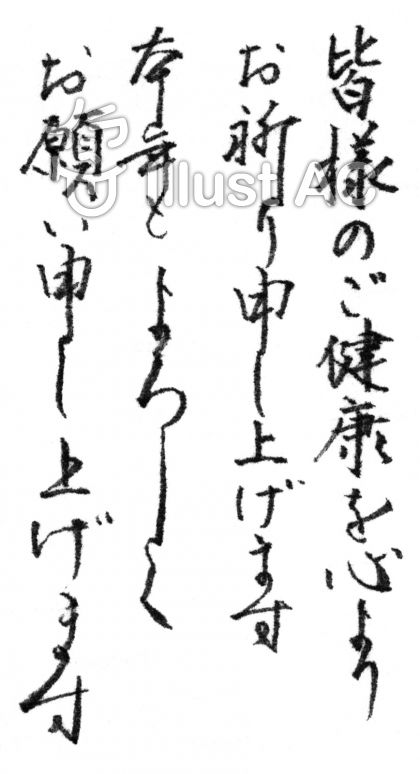 皆様のご健康を心より
お祈り申し上げます
本年もよろしく
お願い申し上げます
Illust AC